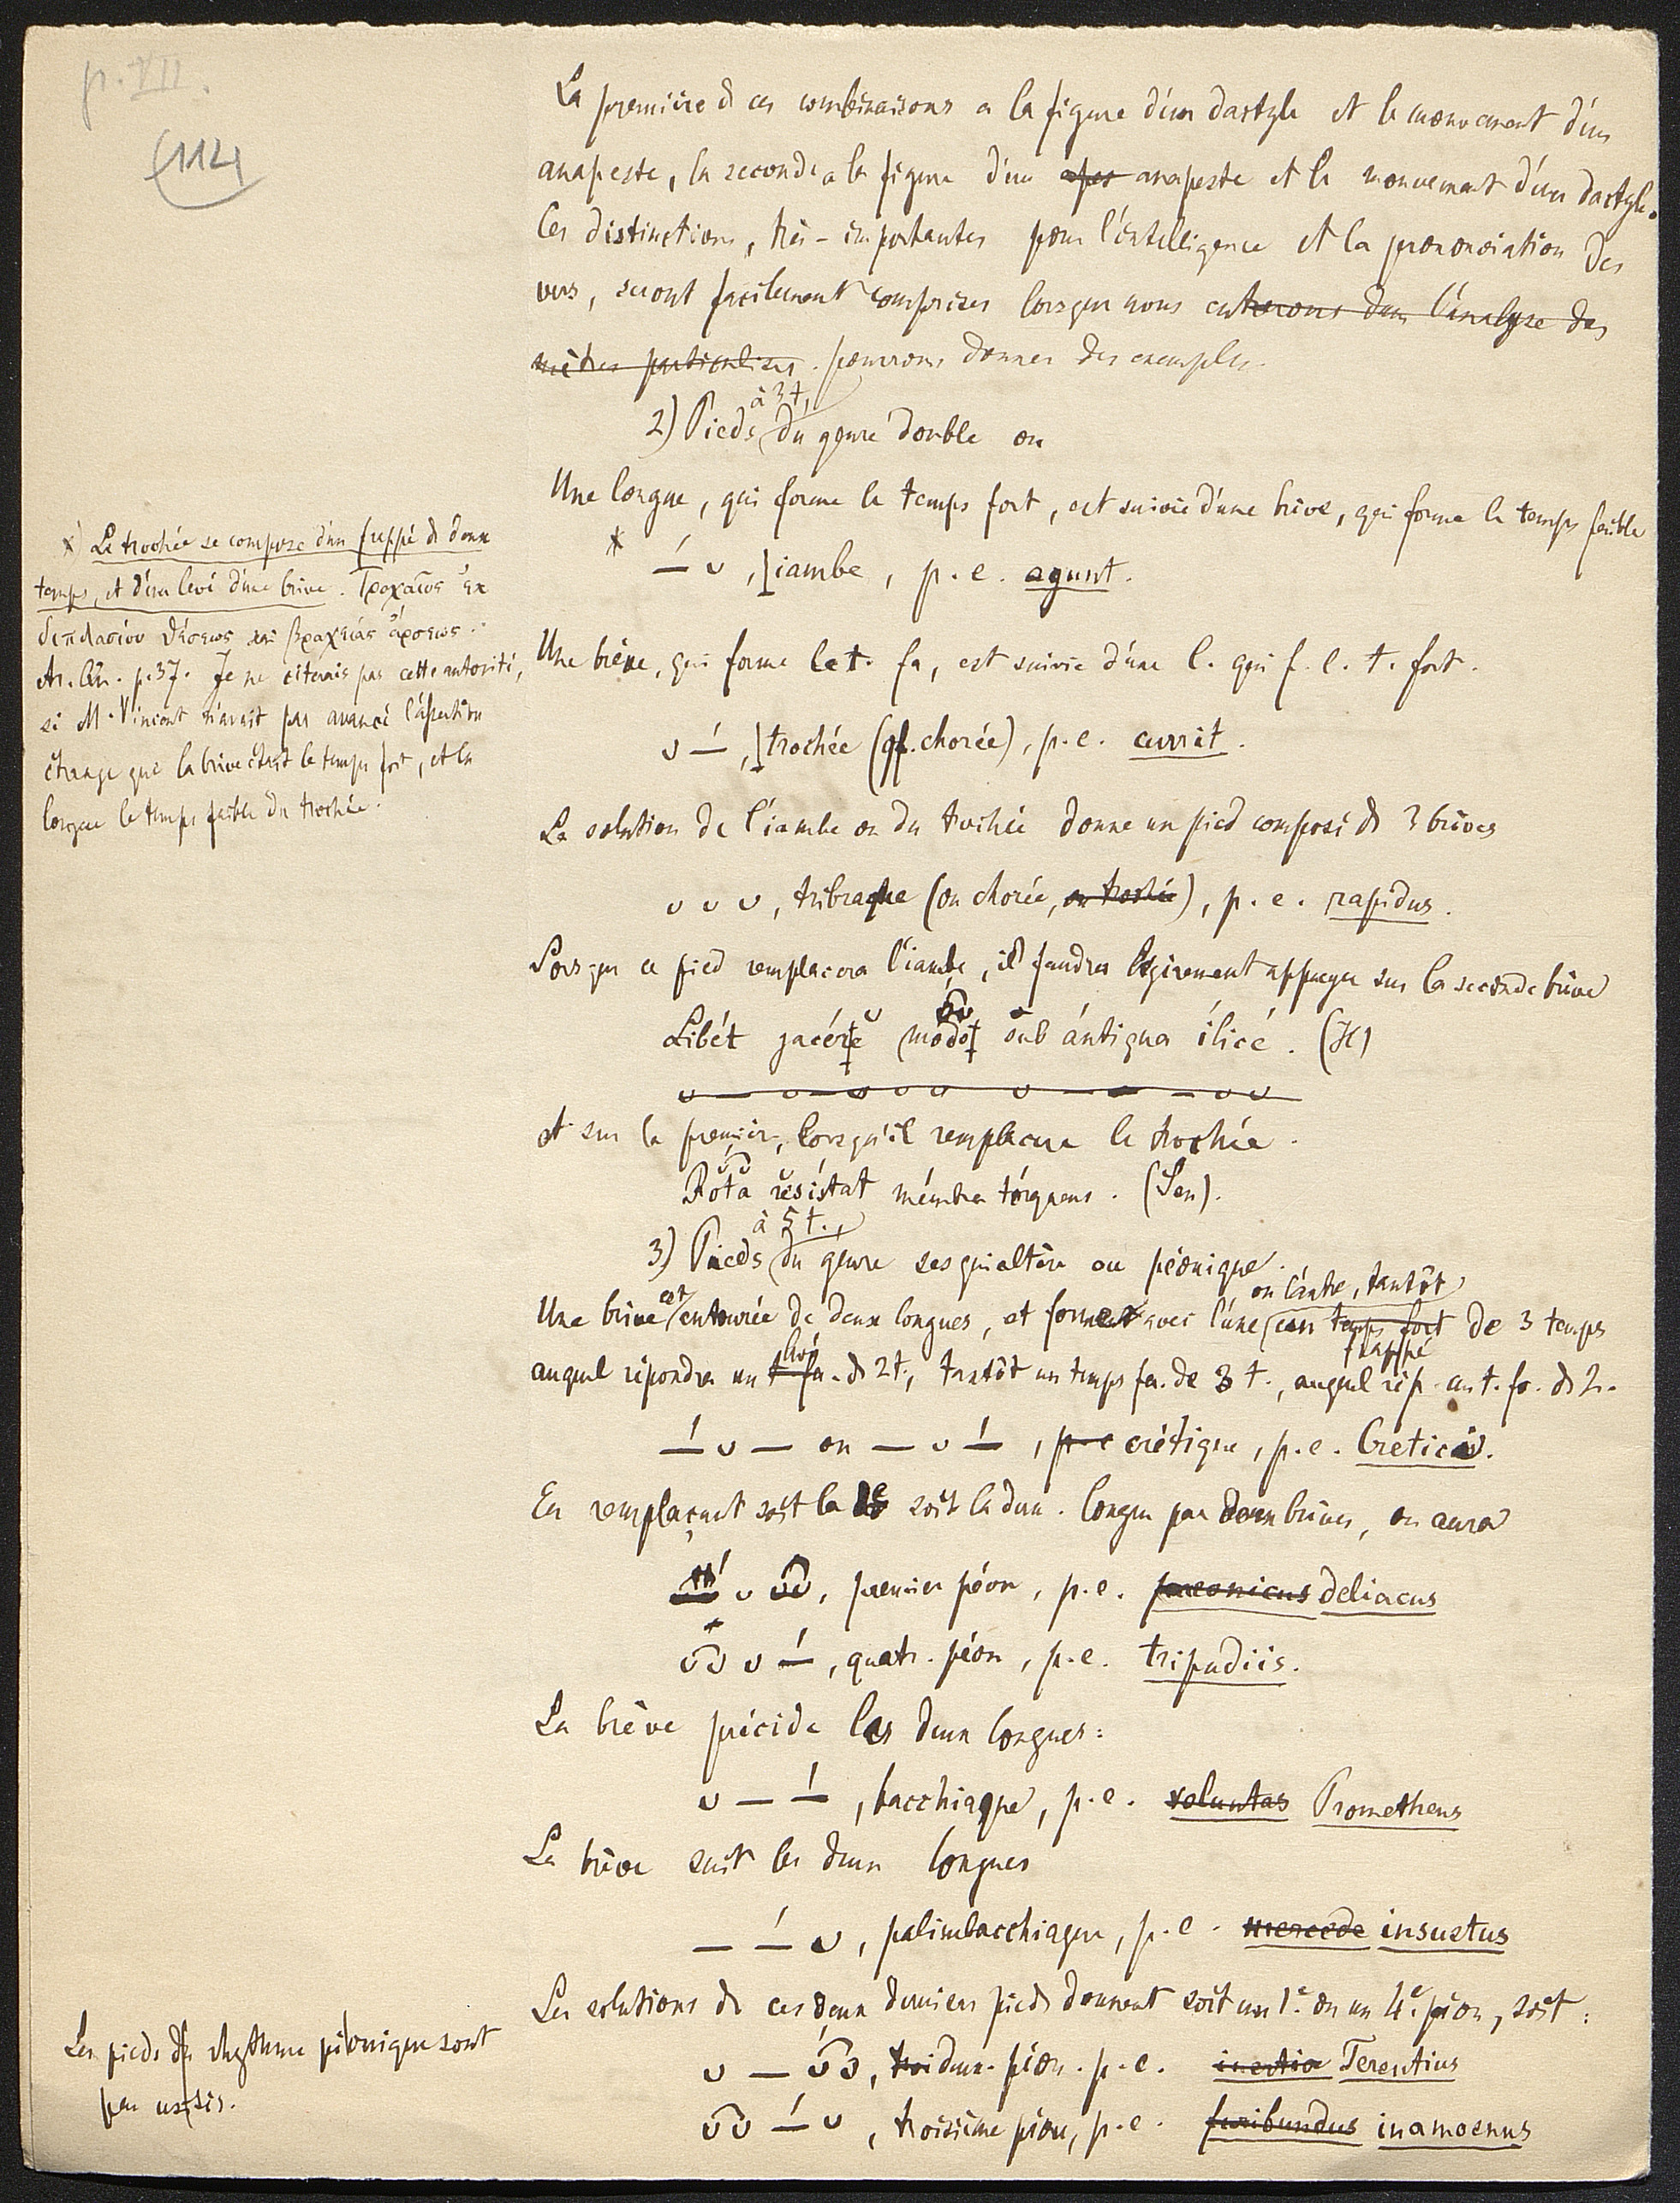 p. VII.
(112)
La première de ces combinaisons a la figure d'un dactyle et le mouvement d'un
anapeste, la seconde a la figure d'un apes anapeste et le mouvement d'un dactyle.
Ces distinctions, très-importantes pour l'intelligence et la prononciation des
vers, seront facilement comprises lorsque nous entrerons dans l'analyse des
mètres particuliers. pourrons donner des exemples.
2) Pieds à 3 t., du genre double ou
Une longue, qui forme le temps fort, est suivie d'une brève, qui forme le temps faible
* –́ ᴗ , iambe, p. e. agunt.
Une brève, qui forme le t. fa, est suivie d'une l. qui f. l. t. fort.
ᴗ –́ , trochée (qf. chorée), p. e. currit.
La solution de l'iambe ou du trochée donne un pied composé de 3 brèves
ᴗ ᴗ ᴗ, tribraque (ou chorée, ou trochée), p. e. rapidus.
Lorsque ce pied remplacera l'iambe, il faudra légèrement appuyer sur la seconde brève
Libét jacére modo sub ántiqua ílicé. (H)
ᴗ — ᴗ — ᴗ ᴗ ᴗ ᴗ — — — ᴗ ᴗ
et sur la première, lorsqu'il remplacera le trochée.
Rota resístat mémbra tórquens. (Sen).
3) Pieds à 5 t., du genre sesquialtère ou péonique.
Une brève est entourée de deux longues, et forme avec l'une ou l'autre, tantôt un temps fort frappé de 3 temps
auquel répondra un t. fa. levé de 2 t., tantôt un temps fa. de 3 t., auquel rép. un t. fo. de 2.
–́ ᴗ — ou — ᴗ –́ , p. e crétique, p. e. Creticus.
En remplaçant soit la soit la deux. longue par deux brèves, on aura
–́ ᴗ ᴗᴗ, premier péon, p. e. paeonicus deliacus
ᴗᴗ ᴗ –́ , quatr. péon, p. e. tripudiis.
La brève précède les deux longues:
ᴗ — –́ , bacchiaque, p. e. voluntas Prometheus
La brève suit les deux longues
— –́ ᴗ, palimbacchiaque, p. e. mercede insuetus
Les solutions de ces deux derniers pieds donnent soit un 1.e ou un 4.e péon, soit:
ᴗ — ᴗ́ᴗ, troi deux. péon. p. e. inertia Terentius
ᴗᴗ –́ ᴗ , troisième péon, p. e. furibundus inamoenus
*) Le trochée se compose d'un frappé de deux
temps, et d'un levé d'une brève. Τροχαῖος ἐκ
διπλασίου θέσεως καὶ βραχείας ἄρσεως.
Ar. Qn. p. 37. Je ne citerais pas cette autorité,
si M. Vincent n'avait pas avancé l'assertion
étrange que la brève était le temps fort, et la
longue le temps faible du trochée.
Les pieds du rhythme péonique sont
peu usités.